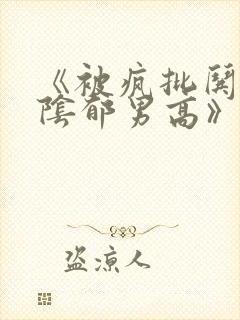 《被疯批関
陰郁男高》
盗凉人